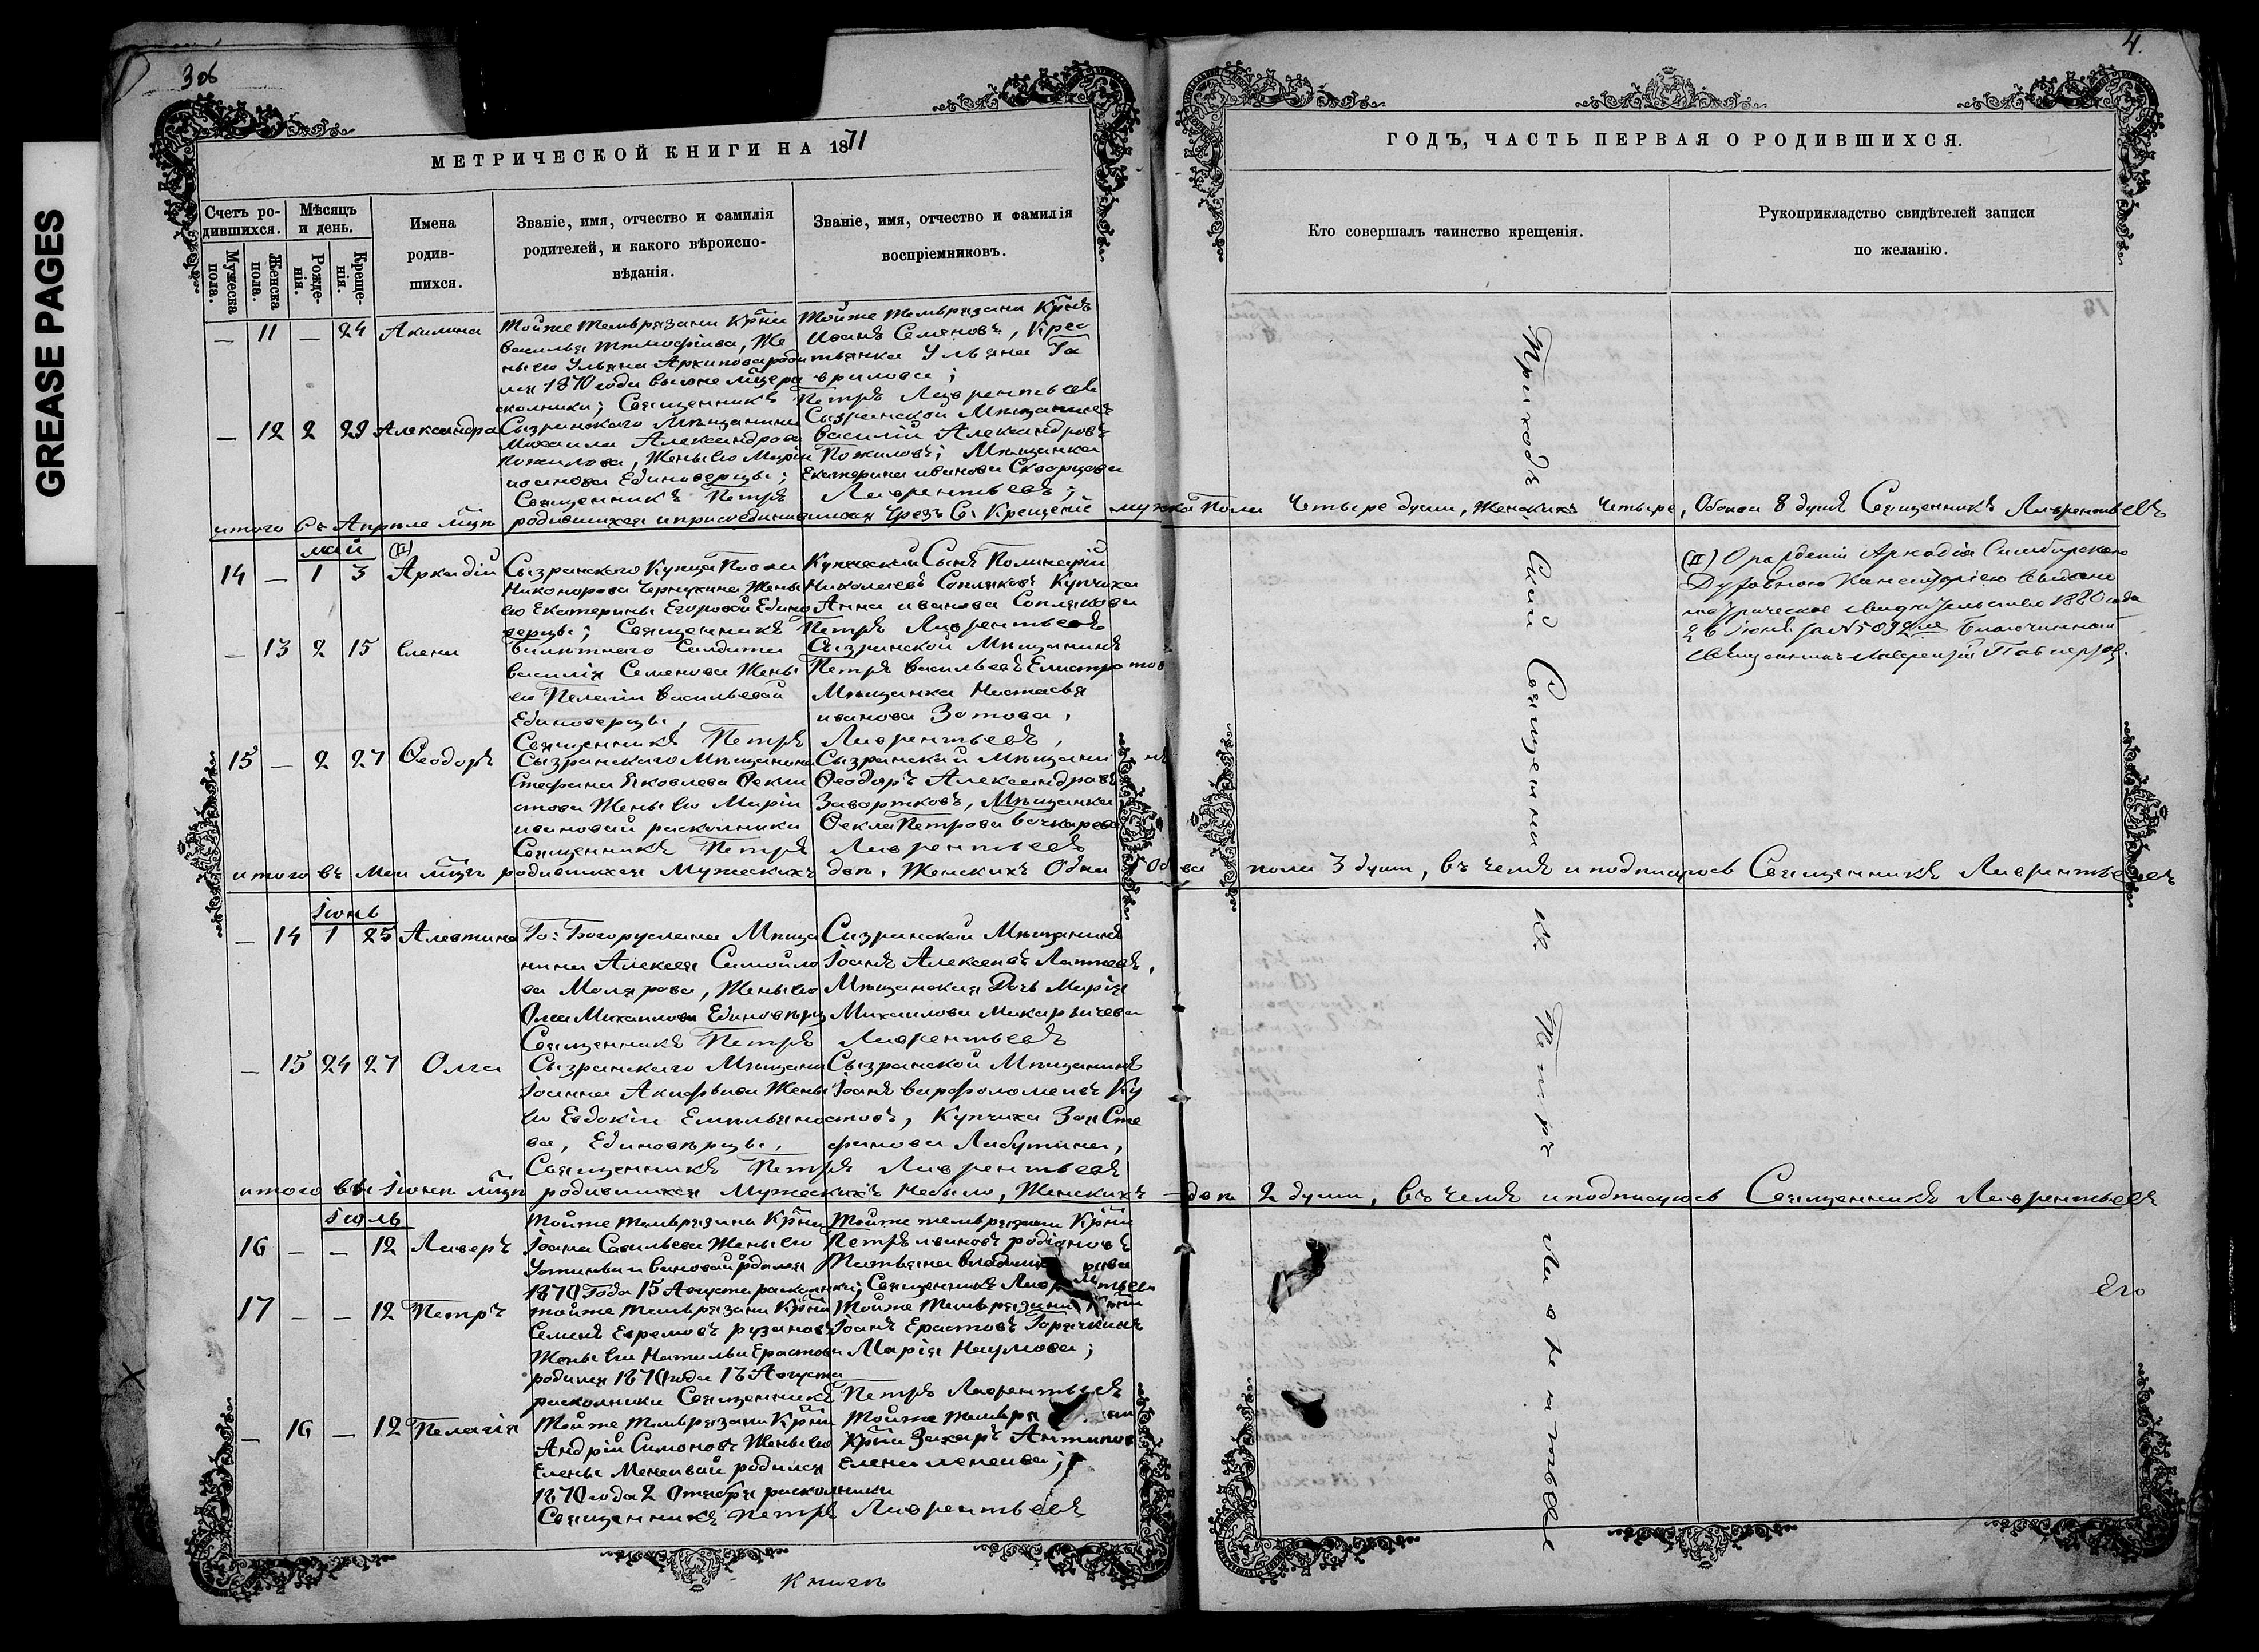 GREASE PAGES
3 об
4.
МЕТРИЧЕСКОЙ КНИГИ НА 1871
ГОДЪ, ЧАСТЬ ПЕРВАЯ О РОДИВШИХСЯ.
Счетъ ро-
дившихся.
Мужеска
пола.
Женска
пола.
Мѣсяцъ
и день.
Рожде-
нія.
Креще-
нія.
Имена
родив-
шихся.
Званіе, имя, отчество и фамилія
родителей, и какого вѣроиспо-
вѣданія.
Званіе, имя, отчество и фамилія
воспріемниковъ.
Кто совершалъ таинство крещенія.
Рукоприкладство свидѣтелей записи
по желанію.
— 11 — 24 Акилина
Тойже Темврязани Крнй
Василья Тимофіева, Же
ны его Ульяна Архипова роди
лся 1870 года
сколники; Священникъ
Тойже Темврязани Крнъ
Иванъ Семеновъ, Крес
тьянка Ульяна Га
врилова;
Петръ Лаврентьевъ
— 12 2 29 Александра
Сызранскаго Мѣщанина
Михаила Александрова
Пожилова, Жены его Маріи
ивановы Единоверцы;
Священникъ Петръ
Сызранской Мѣщанинъ
Василій Александровъ
Пожиловъ; Мѣщанка
Екатерина иванова Скворцова
Лаврентьевъ;
итого въ Апрѣле мцѣ родившихся и присоединившихся чрезъ Св. Крещеніе мужска Пола Четыре души, Женскихъ Четыре, Обоего 8 душъ Священникъ Лаврентьевъ
май
14 — 1 3 Аркадій
Сызранскаго Купца Павла
Никонорова Чернухина Жены
его Екатерины Егоровой Едино
верцы; Священникъ
Купеческій Сынъ Полинарій
Николаевъ Сопляковъ Купчиха
Анна иванова Соплякова
Петръ Лаврентьевъ
(II) О рожденіи Аркадія Симбирскою
Духовною Консисторіею выдано
метрическое свидѣтельство 1880 года
26 Іюня за № 5092 Благочинный
Священникъ
— 13 2 15 Елена
Билетного Солдата
Василія Семенова Жены
его Пелагіи Васильевой
Единоверцы,
Священникъ Петръ
Сызранской Мѣщанинъ
Петръ Васильевъ Елистратов
Мѣщанка Настасья
иванова Зотова,
Лаврентьевъ,
15 — 2 27 Ѳеодоръ
Сызранскаго Мѣщанина
Стефана Яковлева Ѳекли
стова Жены его Маріи
ивановой расколники
Священникъ Петръ
Сызранской Мѣщанинъ
Ѳеодоръ Александровъ
Заворотковъ, Мѣщанка
Ѳекла Петрова Бочкарева
Лаврентьевъ
итого въ Маи мцѣ родившихся Мужескихъ два, Женскихъ Одна Обоева пола 3 души, въ чемъ и подписуюсь Священникъ Лаврентьевъ
Іюнь
— 14 1 25 Алевтина
Го: Богоруслана Мѣща
нина Алексея Самойло
ва Молярова, Жены его
Олги Михаиловы Единовѣрцы
Священникъ Петръ
Сызранской Мѣщанинъ
Іоанъ Алексеевъ Лаптевъ,
Мѣщанская Дочь Марія
Михаилова Макарычева
Лаврентьевъ
— 15 24 27 Олга
Сызранскаго Мѣщани
Іоанна Акифьева Жены
его Евдокіи Емильяно
ва, Единовѣрцы,
Священникъ Петръ
Сызранской Мѣщанинъ
Іоанъ варфоломеевъ Ку
стовъ, Купчиха Зоя Сте
фанова Лабутина,
Лаврентьевъ
итого въ Іюнѣ мцѣ родившихся Мужескихъ небыло, Женскихъ — двѣ 2 души, въ чемъ и подписуюсь Священникъ Лаврентьевъ
Іюль
16 — — 12 Лаверъ
Тойже Темврязина Крнй
Іоана Савельева Жены его
Устиньи ивановой родился
1870 Года 15 Августа расколники; Священникъ
Тойже темврязани Крнй
Петръ ивановъ родіоновъ
Татьяна
17 — — 12 Петръ
тойже темврязани Крнй
Семенъ Ефремовъ рузановъ
Жены его Натальи Ерастовы
родился 1870 года 17 Августа
расколники Священникъ
Тойже Темврязини
Іоанъ Ерастовъ Горячкинъ
Марія Наумова;
Петръ Лаврентьевъ
— 16 — 12 Пелагія
Тойже Темврязани Крнй
Андрій Симоновъ Жены его
Елены родился
1870 года 2 Отября расколники
Священникъ петръ
Тойже темвря
Крнй Захаръ Антипов
Елена
Лаврентьевъ
Приходъ Сей Священникъ Петръ Лаврентьевъ
Его
Книгъ